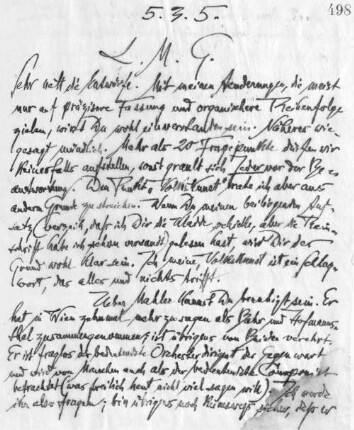 5. 3. 5.
498
L. M. G.
Sehr nett die Entwürfe. Mit meinen Aenderungen, die meist
nur auf präzisere Fassung und organischere Reihenfolge
zielen, wirst Du wohl einverstanden sein. Näheres wie
gesagt, mündlich. Mehr als 20 Fragepunkte dürfen wir
keinesfalls aufstellen, sonst grault sich jeder vor der
Den Punkt Volkskunst habe ich aber aus
andern Grunde zu streichen. Wenn Du meinen beiliegenden Auf-
satz (verzeih, dass ich Dir die schicke, aber die Rein-
schrift habe ich schon versandt) gelesen hast, wird Dir der
Grund wohl klar sein. Ich meine Volkskunst ist ein Schlag-
wort, das alles und nichts trifft.
Ueber Mahler kannst Du beruhigt sein. Er
hat in Wien zehnmal mehr zu sagen als Bahr und Hofmanns-
thal zusammengenommen; ist übrigens von Beiden verehrt.
Er ist fraglos der bedeutendste Orchesterdirigent der Gegenwart
und wird von Manchen auch als der bedeutendste Componist
betrachtet (was freilich heut nicht viel sagen will). Ich werde
ihn also fragen; bin übrigens noch keineswegs sicher, dass er